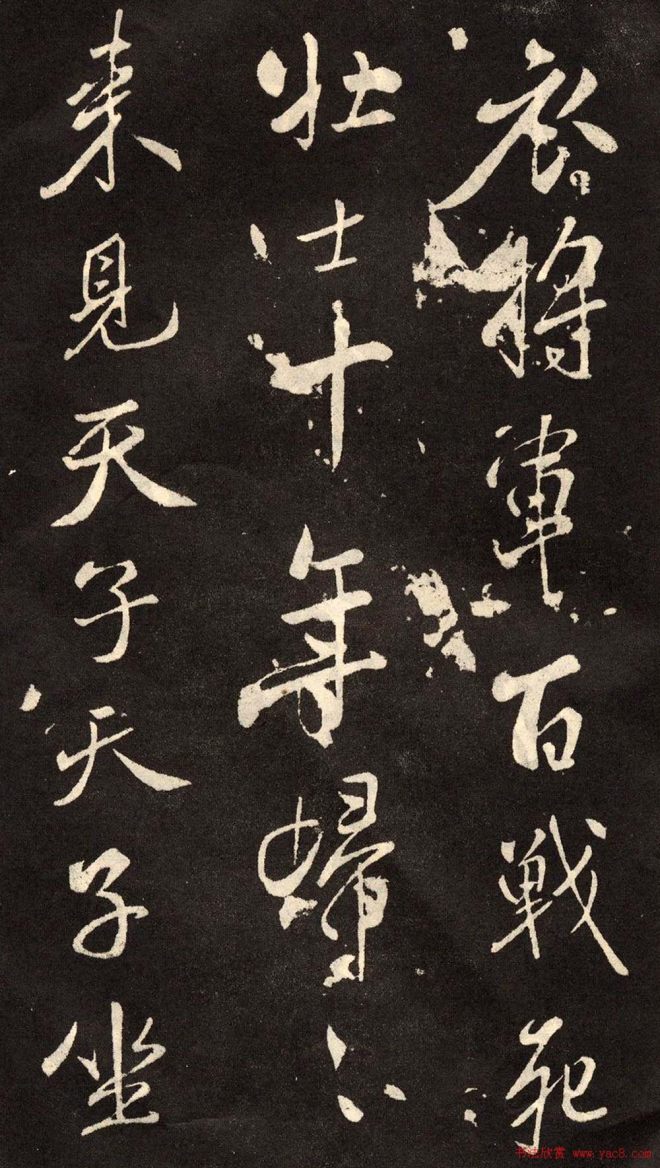 衣將軍百戰死
壯士十年歸〻
來見天子天子坐
书法欣赏 www.yac8.com